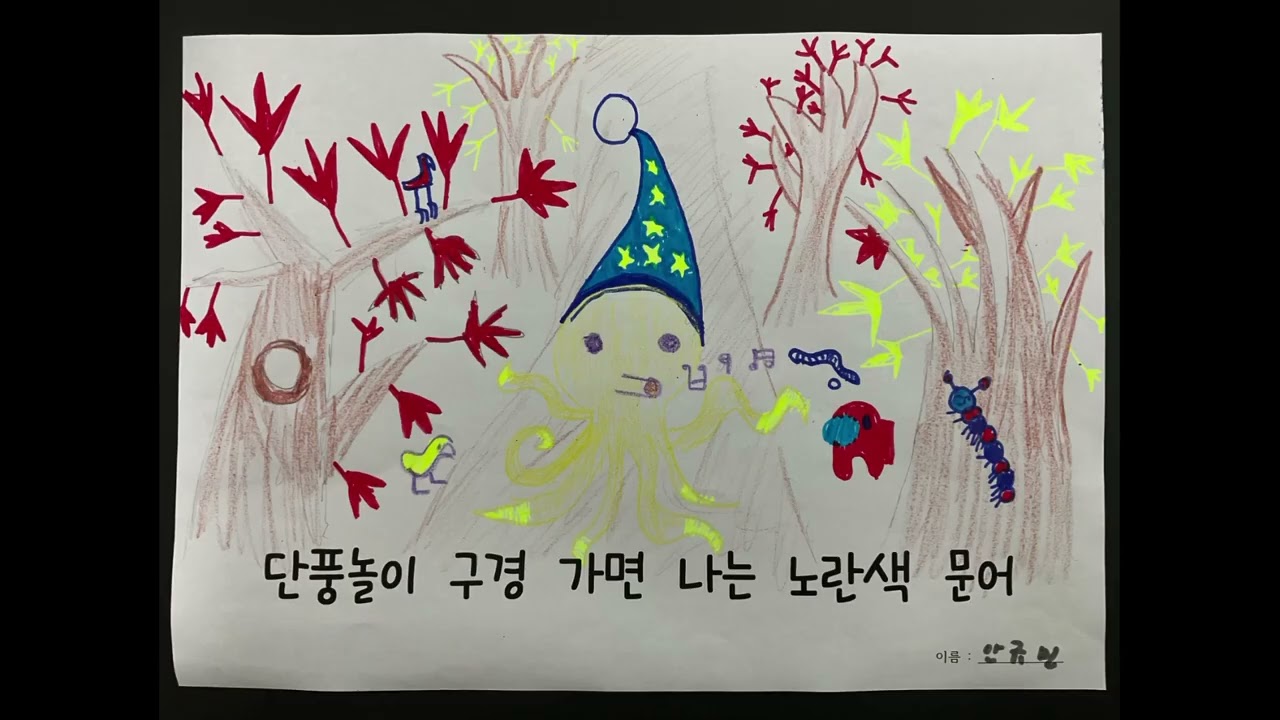 단풍놀이 구경 가면 나는 노란색 문어
이름 : 안규민